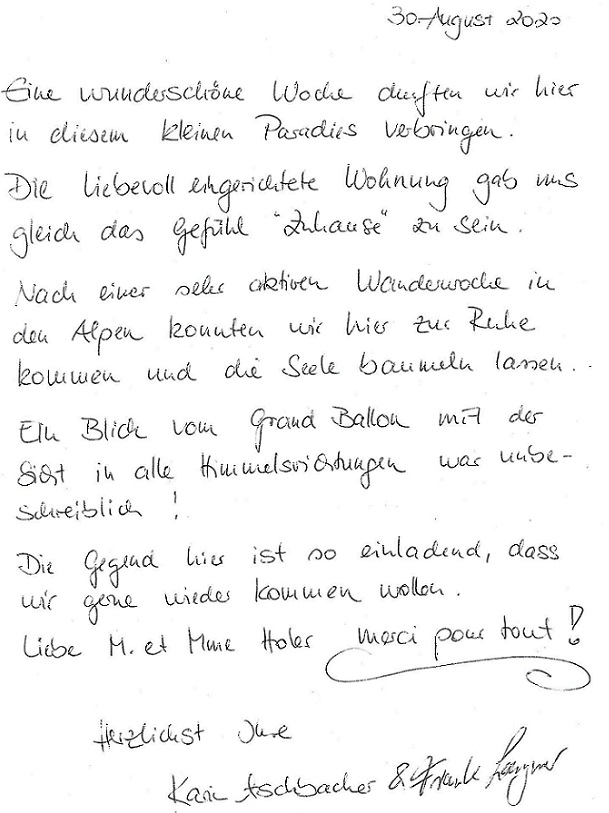 30. August 2020
Eine wunderschöne Woche durften wir hier
in diesem kleinen Paradies verbringen.
Die liebevoll eingerichtete Wohnung gab uns
gleich das Gefühl "Zuhause" zu sein.
Nach einer sehr aktiven Wanderwoche in
den Alpen konnten wir hier zur Ruhe
kommen und die Seele baumeln lassen..
Ein Blick vom Grand Ballon mit der
Sicht in alle Himmelsrichtungen war unbe-
schreiblich!
Die Gegend hier ist so einladend, dass
wir gerne wieder kommen wollen.
Liebe M. et Mme Holer merci pour tout!
Herzlichst Ihre
Karin Aschbacher & Frank